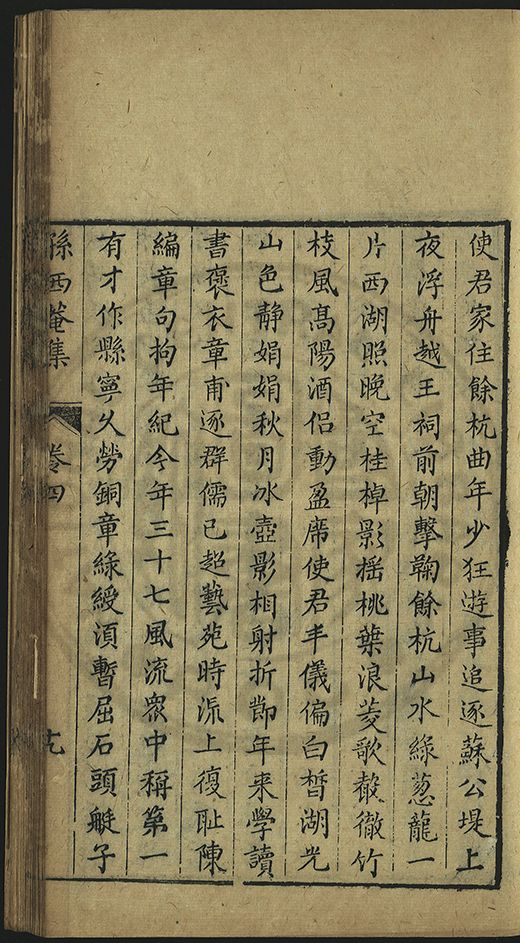 使君家住餘杭曲年少狂遊事追逐蘇公堤上
夜浮舟越王祠前朝擊鞠餘杭山水綠葱蘢一
片西湖照晚空桂棹影揺桃葉浪菱歌聲徹竹
枝風髙陽酒侣動盈席使君丰儀偏白皙湖光
山色靜娟娟秋月冰壺影相射折節年来學讀
書褒衣章甫逐群儒已超藝苑時流上復耻陳
編章句拘年紀今年三十七風流衆中稱第一
有才作縣寧久勞銅章綠綬湏暫屈石頭艇子
孫西菴集 卷四